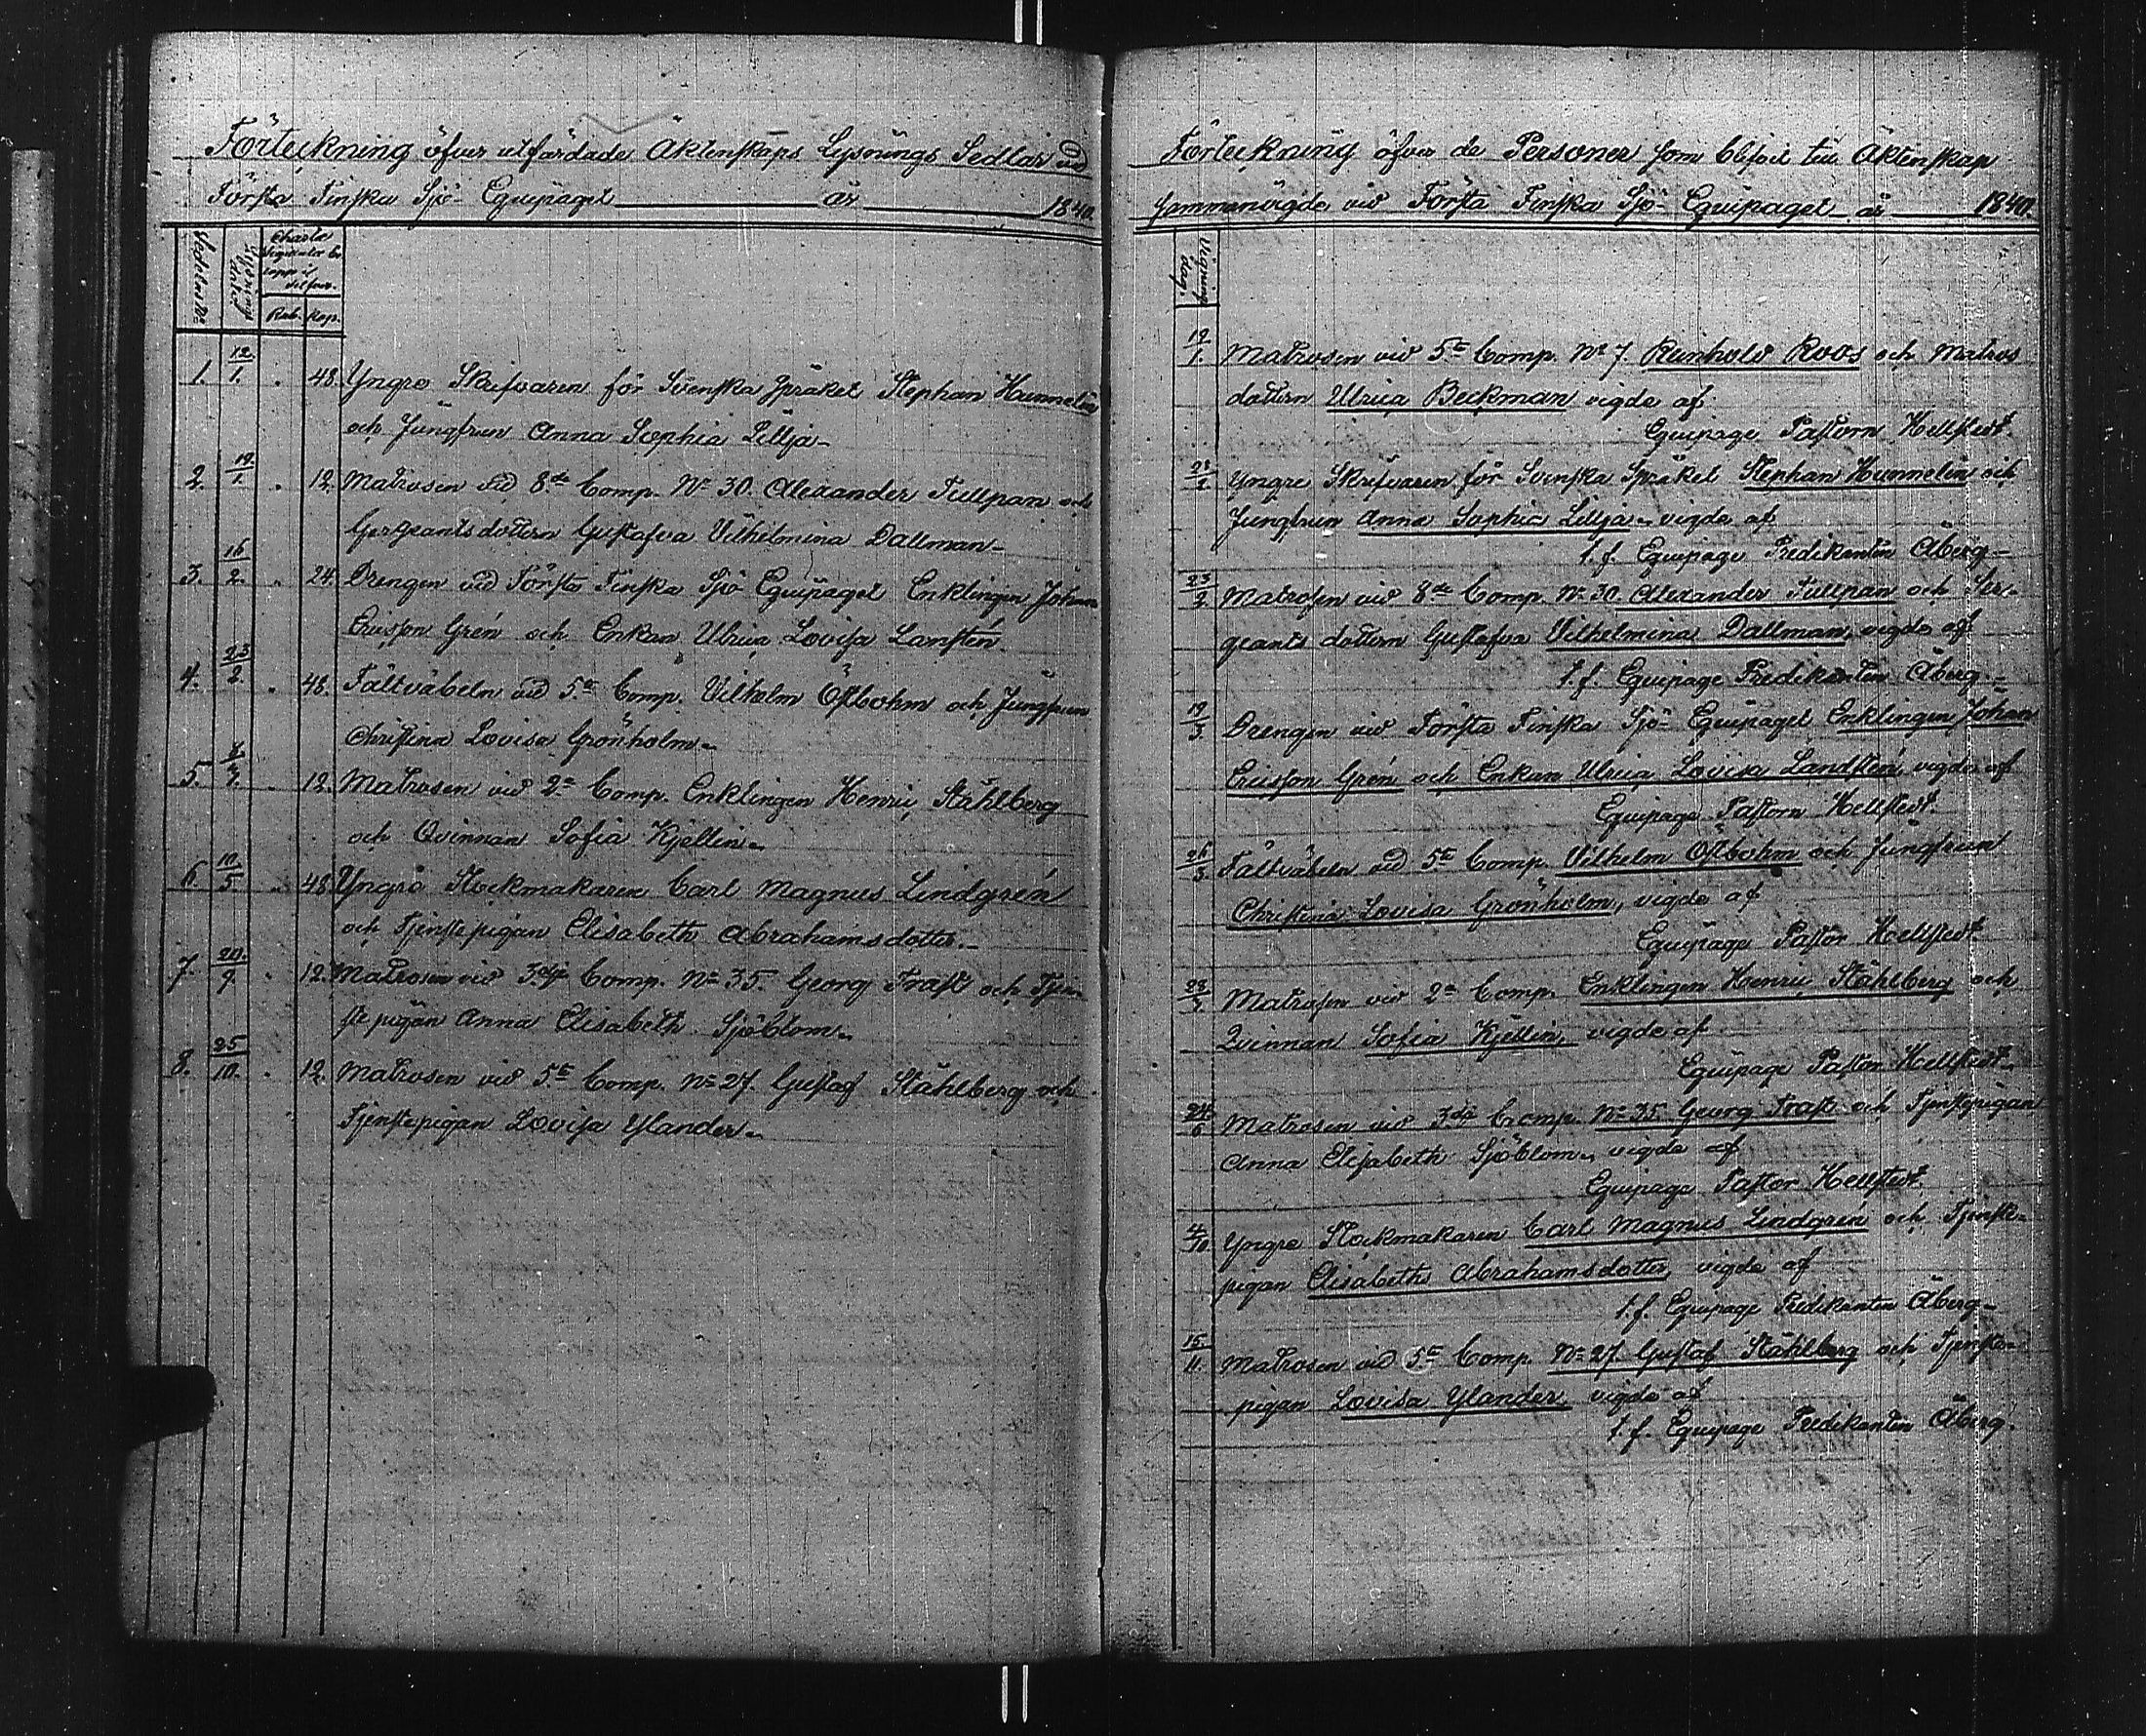 Förteckning öfver utfärdade Äktenskaps Lysnings Sedlar vid
Första Finska Sjö-Equipaget år 1840.
Sedelns No
Rub. Kop.
1. 12/1. . 48. Yngre Skrifvaren för Svenska språket Stephan Hummelin
och Jungfrun Anna Sophia Lillja-
2. 19/1. . 12. Matrosen vid 8de Comp. No 30. Alexander Tullpan och
Sergeantsdottern Gustafva Vilhelmina Dallman-
3. 16/2. . 24. Drengen vid Första Finska Sjö Equipaget Enklingen Johan
Ericsson Grén och Enkan Ulrica Lovisa Lansten.
4. 23/2. . 48. Fältväbeln vid 5te Comp. Vilhelm Öfbohm och Jungfrun
Christina Lovisa Grönholm-
5. . 12. Matrosen vid 2a Comp. Enklingen Henric Ståhlberg
och Qvinnan Sofia Kjellin-
6 10/5. . 48 Yngre Stockmakaren Carl Magnus Lindgrén
och Tjenstepigan Elisabeth Abrahamsdotter.-
7. 20./9. . 12. Matrosen vid 3dje Comp. No 35. Georg Trast och Tjen-
stepigan Anna Elisabeth Sjöblom-
8. 25/10. . 12. Matrosen vid 5te Comp. No 27. Gustaf Ståhlberg och
Tjenstepigan Lovisa Ylander-
Förteckning öfver de Personer som blifvit till Äktenskap
sammanvigde vid Första Finska Sjö-Equipaget år 1840.
Vignings dag.
19/1. Matrosen vid 5te Comp. No 7. Reinhold Roos och Matros
dottern Ulrica Beckman vigde af
Equipage Pastorn Hellstedt.
Yngre Skrifvaren för Svenska Språket Stephan Hummelin och
Jungfrun Anna Sophia Lillja- vigde af
t.f. Equipage Predikanten Åberg-
23/2 Matrosen vid 8de Comp. No 30. Alexander Tullpan och Ser-
geants dottern Gustafva Vilhelmina Dallman, vigde af
t.f. Equipage Predikanten Åberg.-
19/3 Drengen vid Första Finska Sjö-Equipaget Enklingen Johan
Ericsson Grén och Enkan Ulrica Lovisa Landsten, vigde af
Equipage Pastorn Hellstedt.
26/3 Fältväbeln vid 5te Comp. Vilhelm Öfbohm och Jungfrun
Christina Lovisa Grönholm, vigde af
Equipage Pastor Hellstedt.
Matrosen vid 2a Comp. Enklingen Henric Ståhlberg och
Qvinnan Sofia Kjellin, vigde af
Equipage Pastor Hellstedt-
Matrosen vid 3dje Comp. No 35 Georg Trast och Tjenstepigan
Anna Elisabeth Sjöblom, vigde af
Equipage Pastor Hellstedt.
4/10 Yngre Stockmakaren Carl Magnus Lindgrén och Tjenste-
pigan Elisabeth Abrahamsdotter, vigde af
t.f. Equipage Predikanten Åberg-
15/11. Matrosen vid 5te Comp. No 27 Gustaf Ståhlberg och Tjenste-
pigan Lovisa Ylander, vigde af
t.f. Equipage Predikanten Åberg.